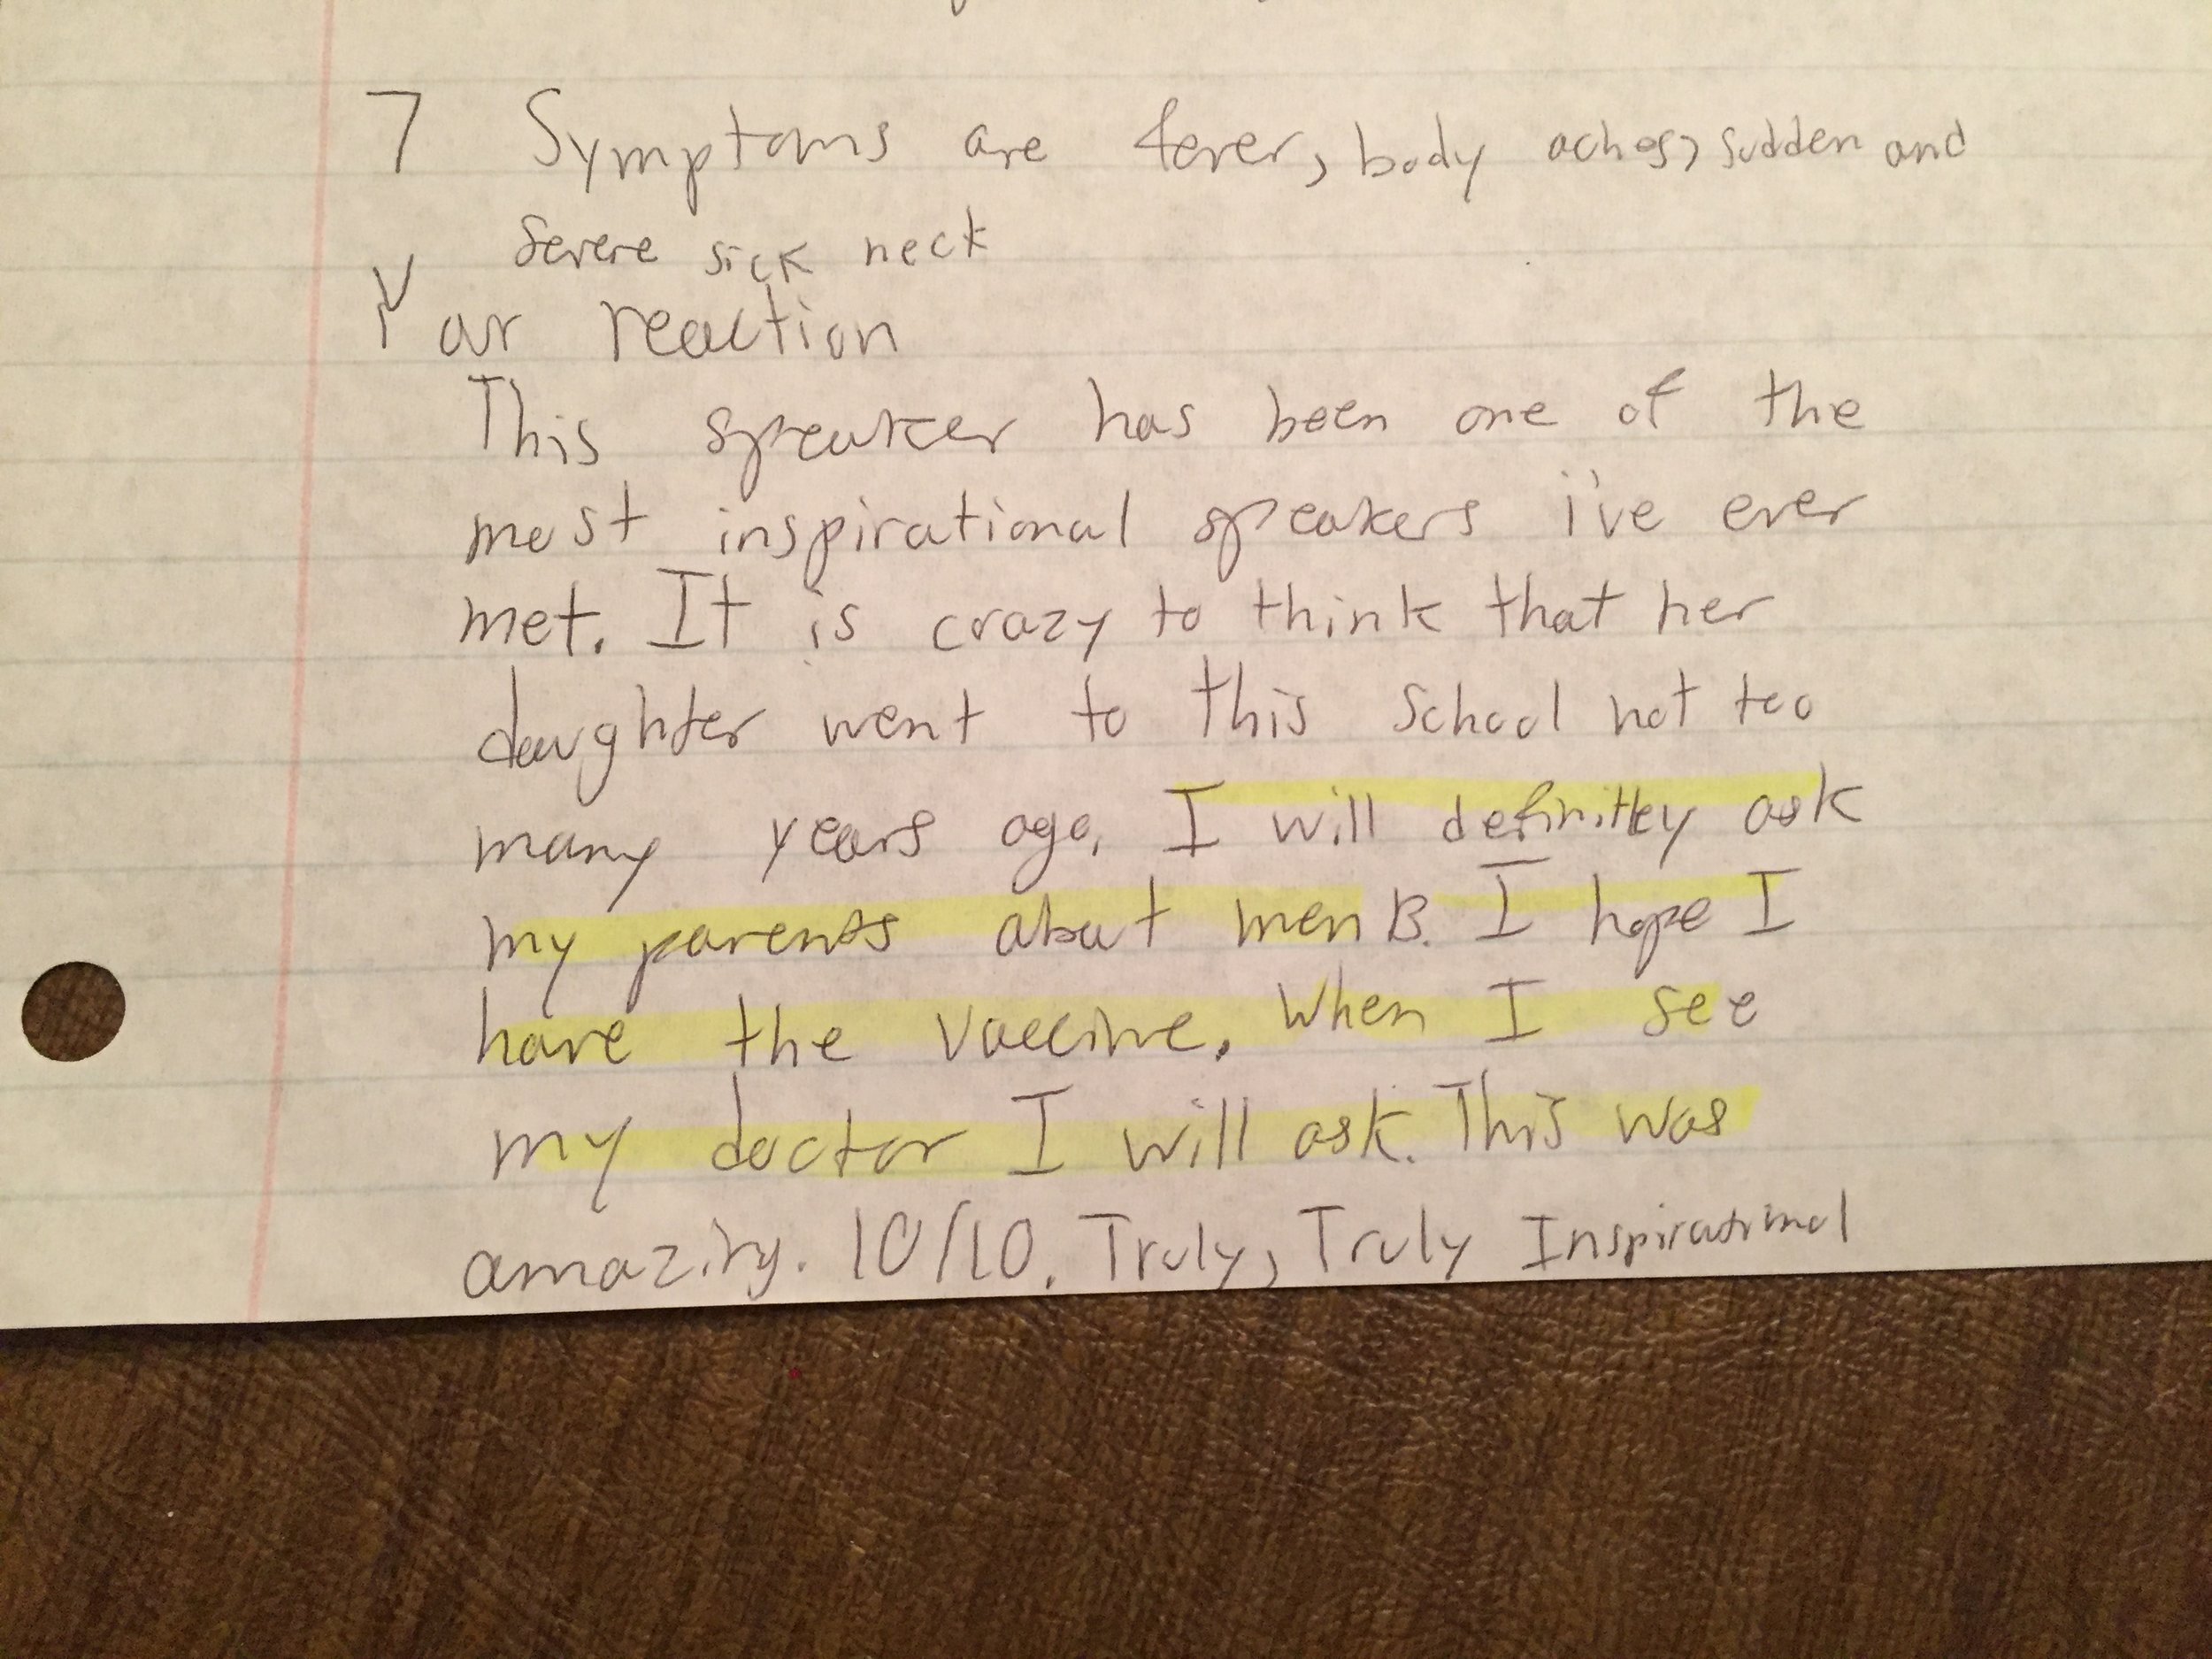 7 Symptoms are fever, body aches, sudden and
severe sick neck
Your reaction
This speaker has been one of the
most inspirational speakers i've ever
met. It is crazy to think that her
daughter went to this school not too
many years ago. I will definitley ask
my parents about men B. I hope I
have the vaccine. When I see
my doctor I will ask. This was
amazing. 10/10. Truly, Truly Inspirational